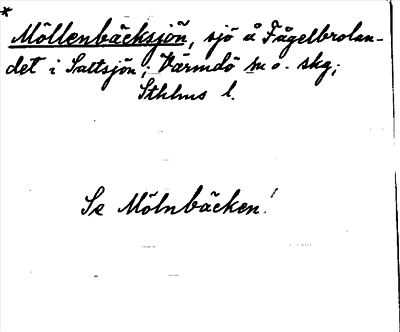 *
Möllenbäcksjön, sjö å Fågelbrolan-
det i Saltsjön; Värmdö su o. skg;
Sthlms l.
Se Mölnbäcken!